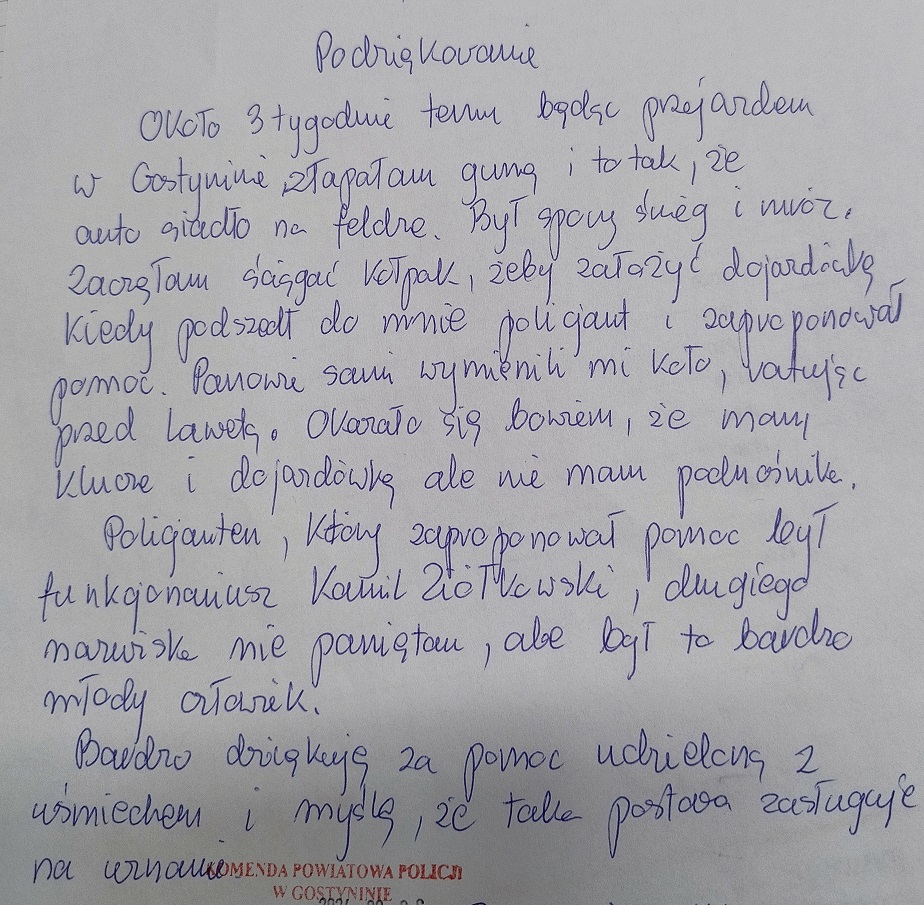 Podziękowanie
Około 3 tygodnie temu będąc przejazdem
w Gostyninie złapałam gumę i to tak, że
auto siadło na feldze. Był spory śnieg i mróz.
Zaczęłam ściągać kołpak, żeby założyć dojazdówkę
kiedy podszedł do mnie policjant i zaproponował
pomoc. Panowie sami wymienili mi koło, ratując
przed lawetą. Okazało się bowiem, że mam
klucze i dojazdówkę ale nie mam podnośnika.
Policjantem, który zaproponował pomoc był
funkcjonariusz Kamil Ziółkowski, drugiego
nazwiska nie pamiętam, ale był to bardzo
młody człowiek.
Bardzo dziękuję za pomoc udzieloną z
uśmiechem i myślę, że taka postawa zasługuje
na uznanie
KOMENDA POWIATOWA POLICJI
W GOSTYNINIE